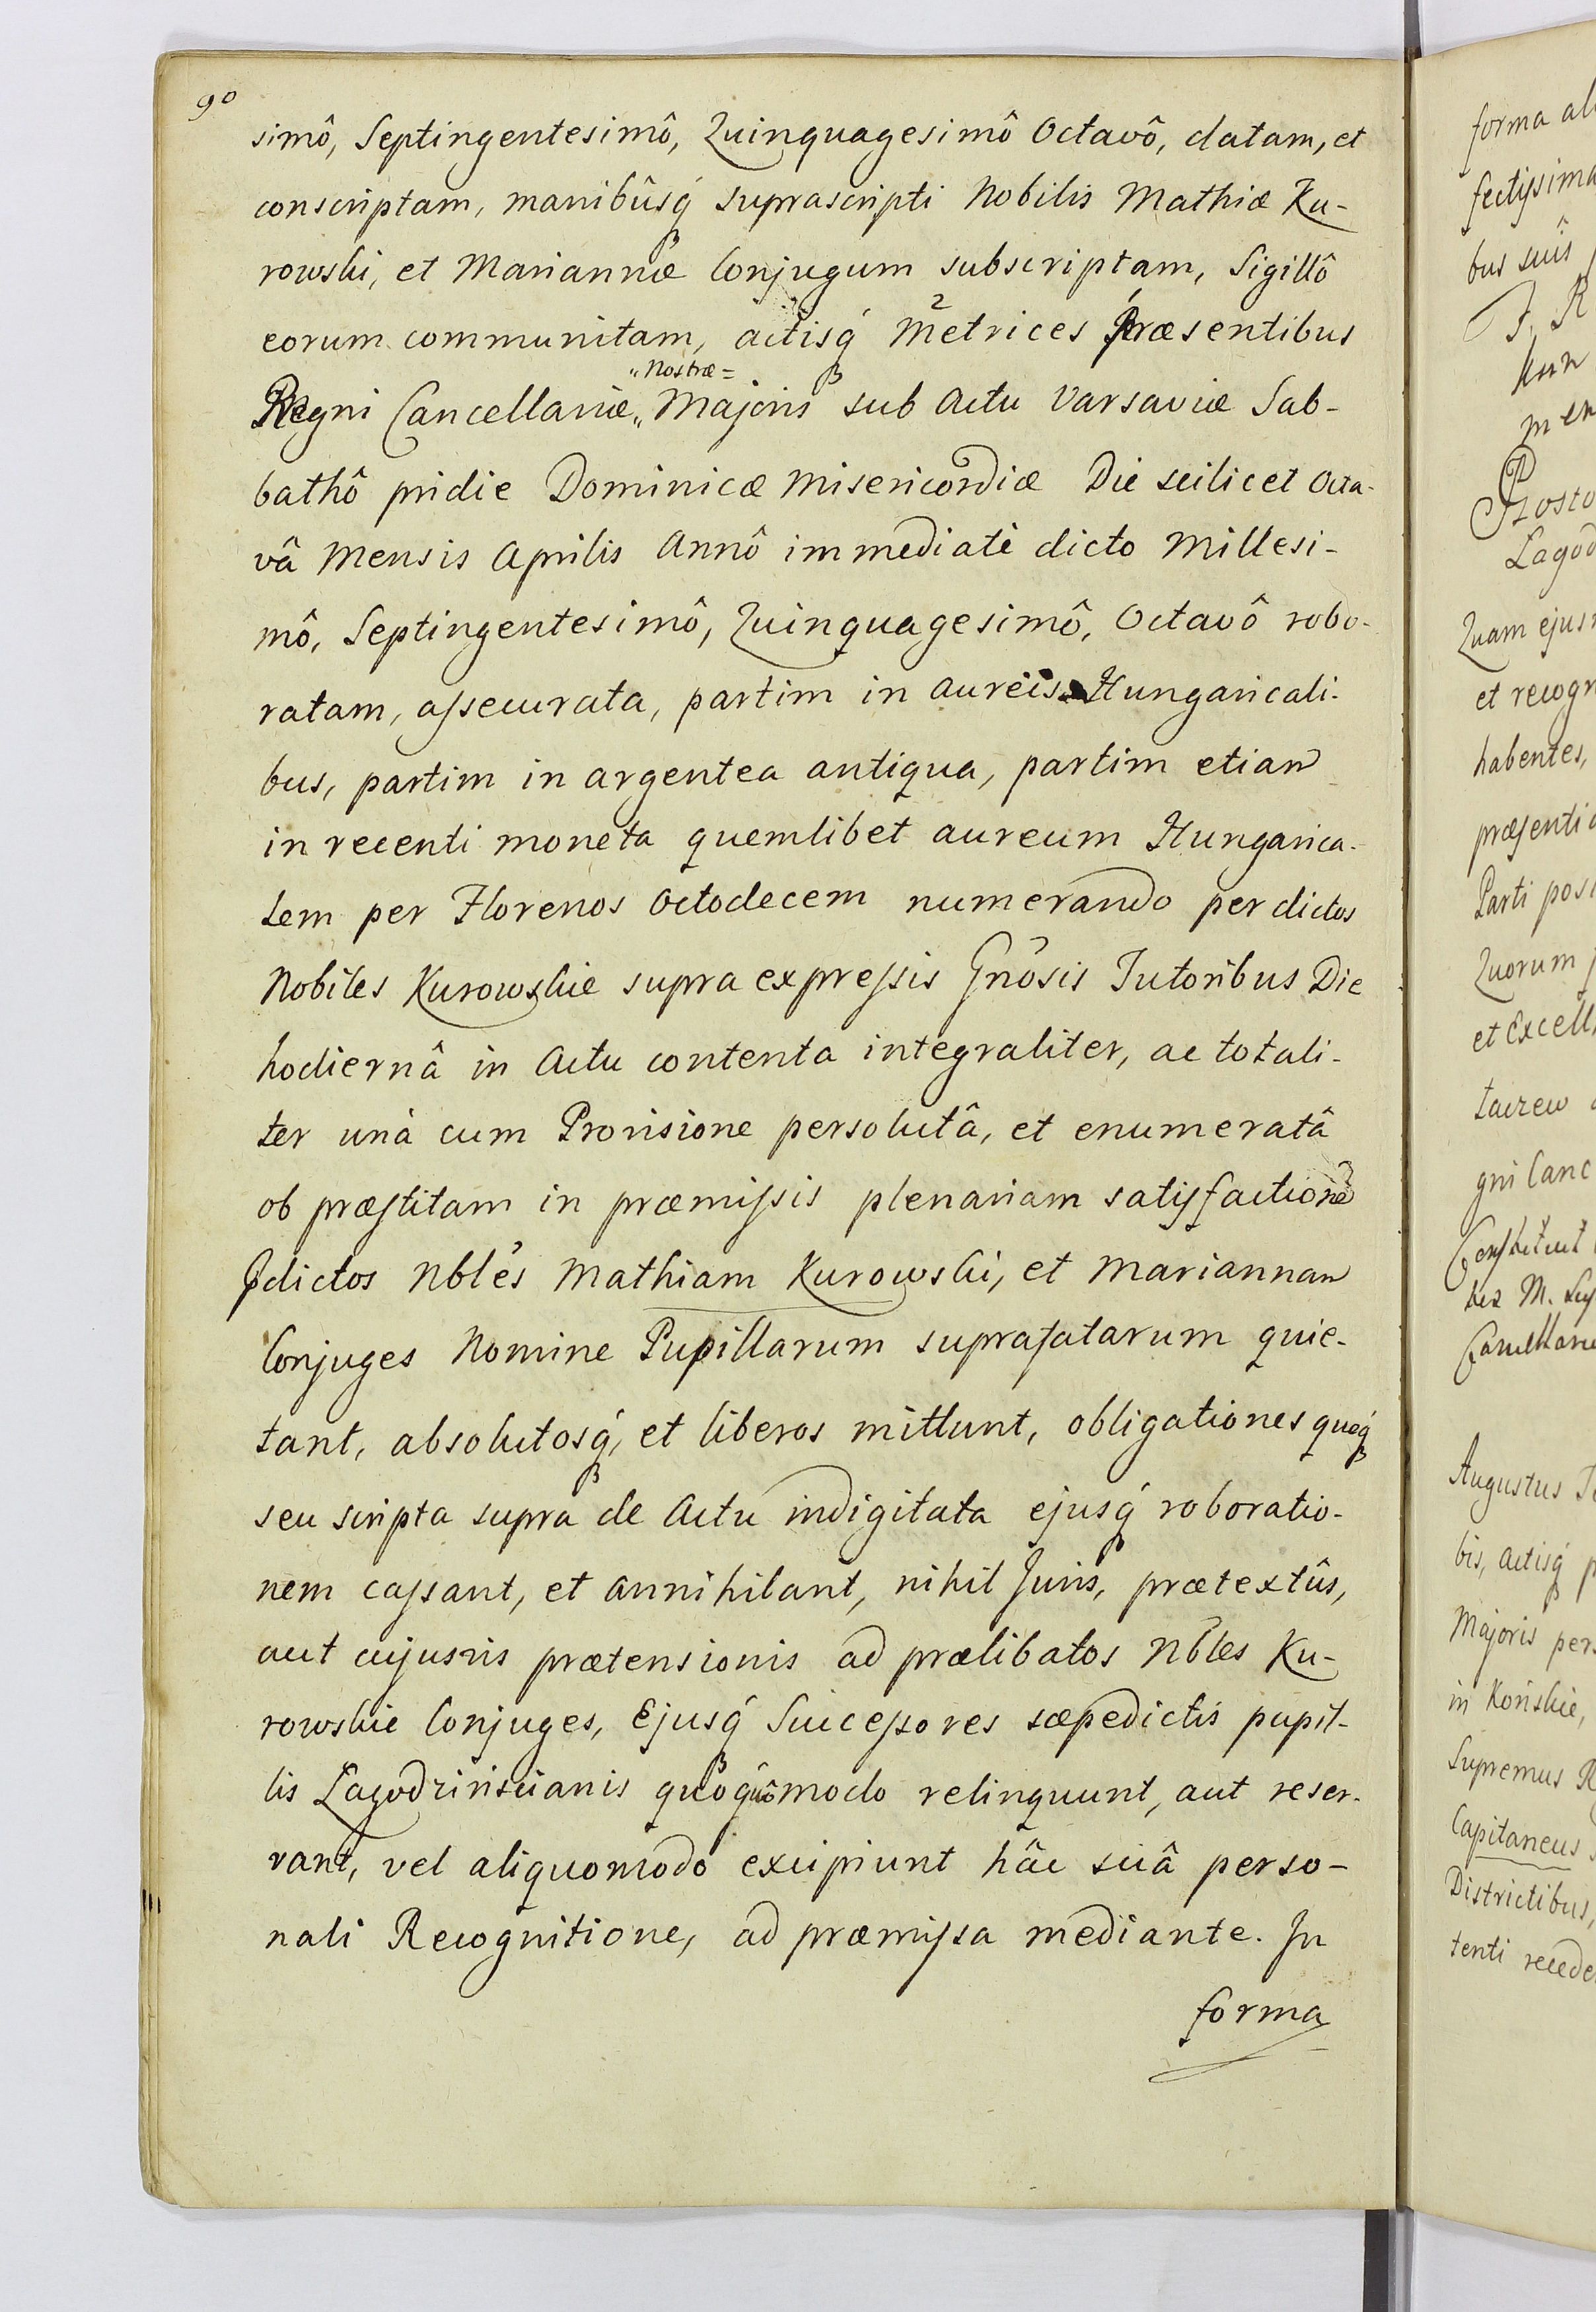 90
simô, Septingentesimô, Quinquagesimô Octavô, datam, et
conscriptam, manibûsq́ suprascripti Nobilis Mathiæ Ku-
rowski, et Mariannæ Conjugum subscriptam, Sigillô
eorum communitam, actisq́ Metrices 2 Præsentibus 1
„Nostræ=
Regni Cancellariæ„ Majoris sub Actu Varsaviæ Sab-
bathô pridie Dominicæ Misericordiæ Die scilicet Octa-
vâ Mensis Aprilis Annô immediatè dicto Millesi-
mô, Septingentesimô, Quinquagesimô, Octavô robo-
ratam, assecurata, partim in aureis Hungaricali-
bus, partim in argentea antiqua, partim etiam
in recenti moneta quemlibet aureum Hungarica-
lem per Florenos Octodecem numerando per dictos
Nobiles Kurowskie supra expressis Gnõsis Tutoribus Die
hodiernâ in Actu contenta integraliter, ac totali-
ter unà cum Provisione persolutâ, et enumeratâ
ob præstitam in præmissis plenariam satisfactionẽ
Pdictos Nbles Mathiam Kurowski, et Mariannam
Conjuges Nomine Pupillarum suprafatarum quie-
tant, absolutosq́, et liberos mittunt, obligationes quoq́
seu scripta supra de Actu indigitata ejusq́ roboratio-
nem cassant, et annihilant, nihil Juris, prætextûs,
aut cujusvis prætensionis ad prælibatos Nbles Ku-
rowskie Conjuges, Ejusq́ Successores sæpedictis pupil-
lis Łagodzinscianis quoquômodo relinquunt, aut reser-
vant, vel aliquomodo excipiunt hâc suâ perso-
nali Recognitione, ad præmissa mediante. In
forma
forma
bus suis
F. R
Quam
et recogn
habentes,
præsenti
Parti
Quorum
et Excell
gni Canc
Augustus
bis, actisq́
Majoris per
in Końskie,
Supremus R
Capitaneus
Districtibus,
tenti recede